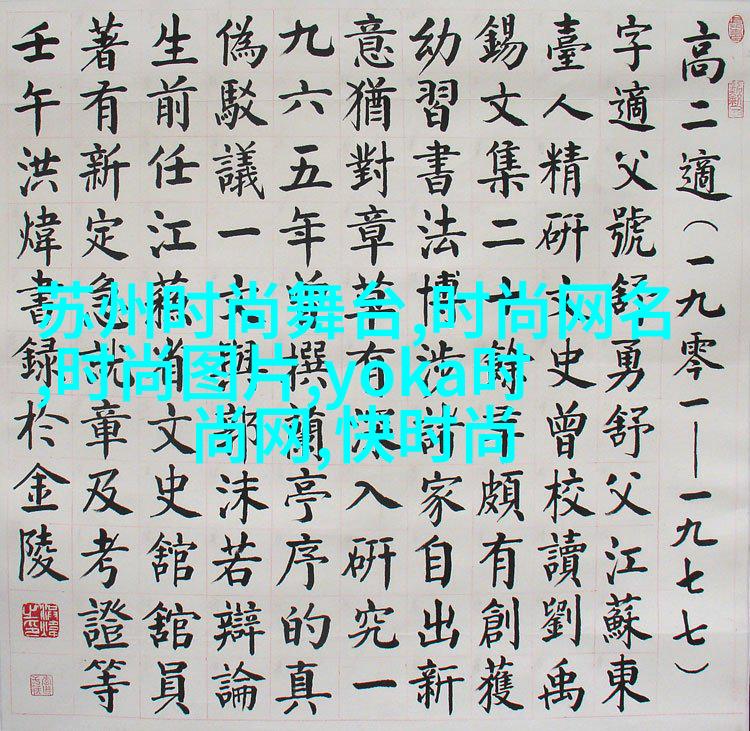 高二適（一九零一——一九七七）
字適父號舒勇舒父江蘇東
臺人精研文史曾校讀劉禹
錫文集二十餘年頗有創獲
幼習書法博涉諸家自出新
意猶對章草有深入研究一
九六五年曾撰蘭亭序的真
偽駁議一文與郭沫若辯論
生前任江蘇省文史舘舘員
著有新定急就章及考證等
壬午洪煒書録於金陵
苏州时尚舞台,时尚网名
,时尚图片,yoka时
尚网,快时尚